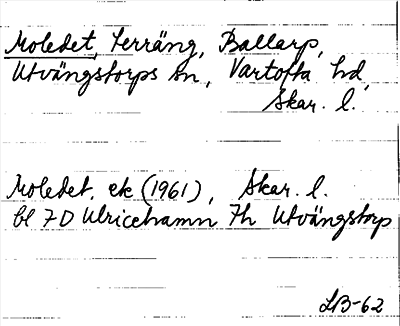 Moledet, Terräng, Ballarp,
Utvängstorps sn, Vartofta hd,
Skar. l.
Moledet. ek (1961), Skar. l.
bl 7D Ulricehamn 7h Utvängstorp
LB-62